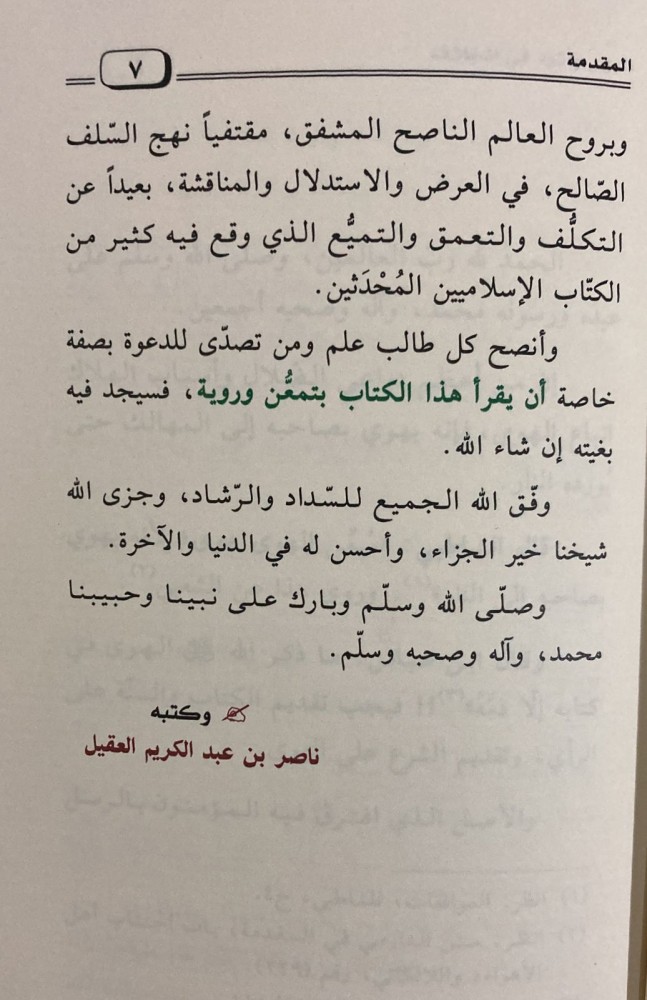 المقدمة
٧
وبروح العالم الناصح المشفق، مقتفياً نهج السّلف
الصّالح، في العرض والاستدلال والمناقشة، بعيداً عن
التكلُّف والتعمق والتميُّع الذي وقع فيه كثير من
الكتّاب الإسلاميين المُحْدَثين.
وأنصح كل طالب علم ومن تصدّى للدعوة بصفة
خاصة أن يقرأ هذا الكتاب بتمعُّن وروية، فسيجد فيه
بغيته إن شاء الله.
وفّق الله الجميع للسّداد والرّشاد، وجزى الله
شيخنا خير الجزاء، وأحسن له في الدنيا والآخرة.
وصلّى الله وسلّم وبارك على نبينا وحبيبنا
محمد، وآله وصحبه وسلّم.
وكتبه
ناصر بن عبد الكريم العقيل